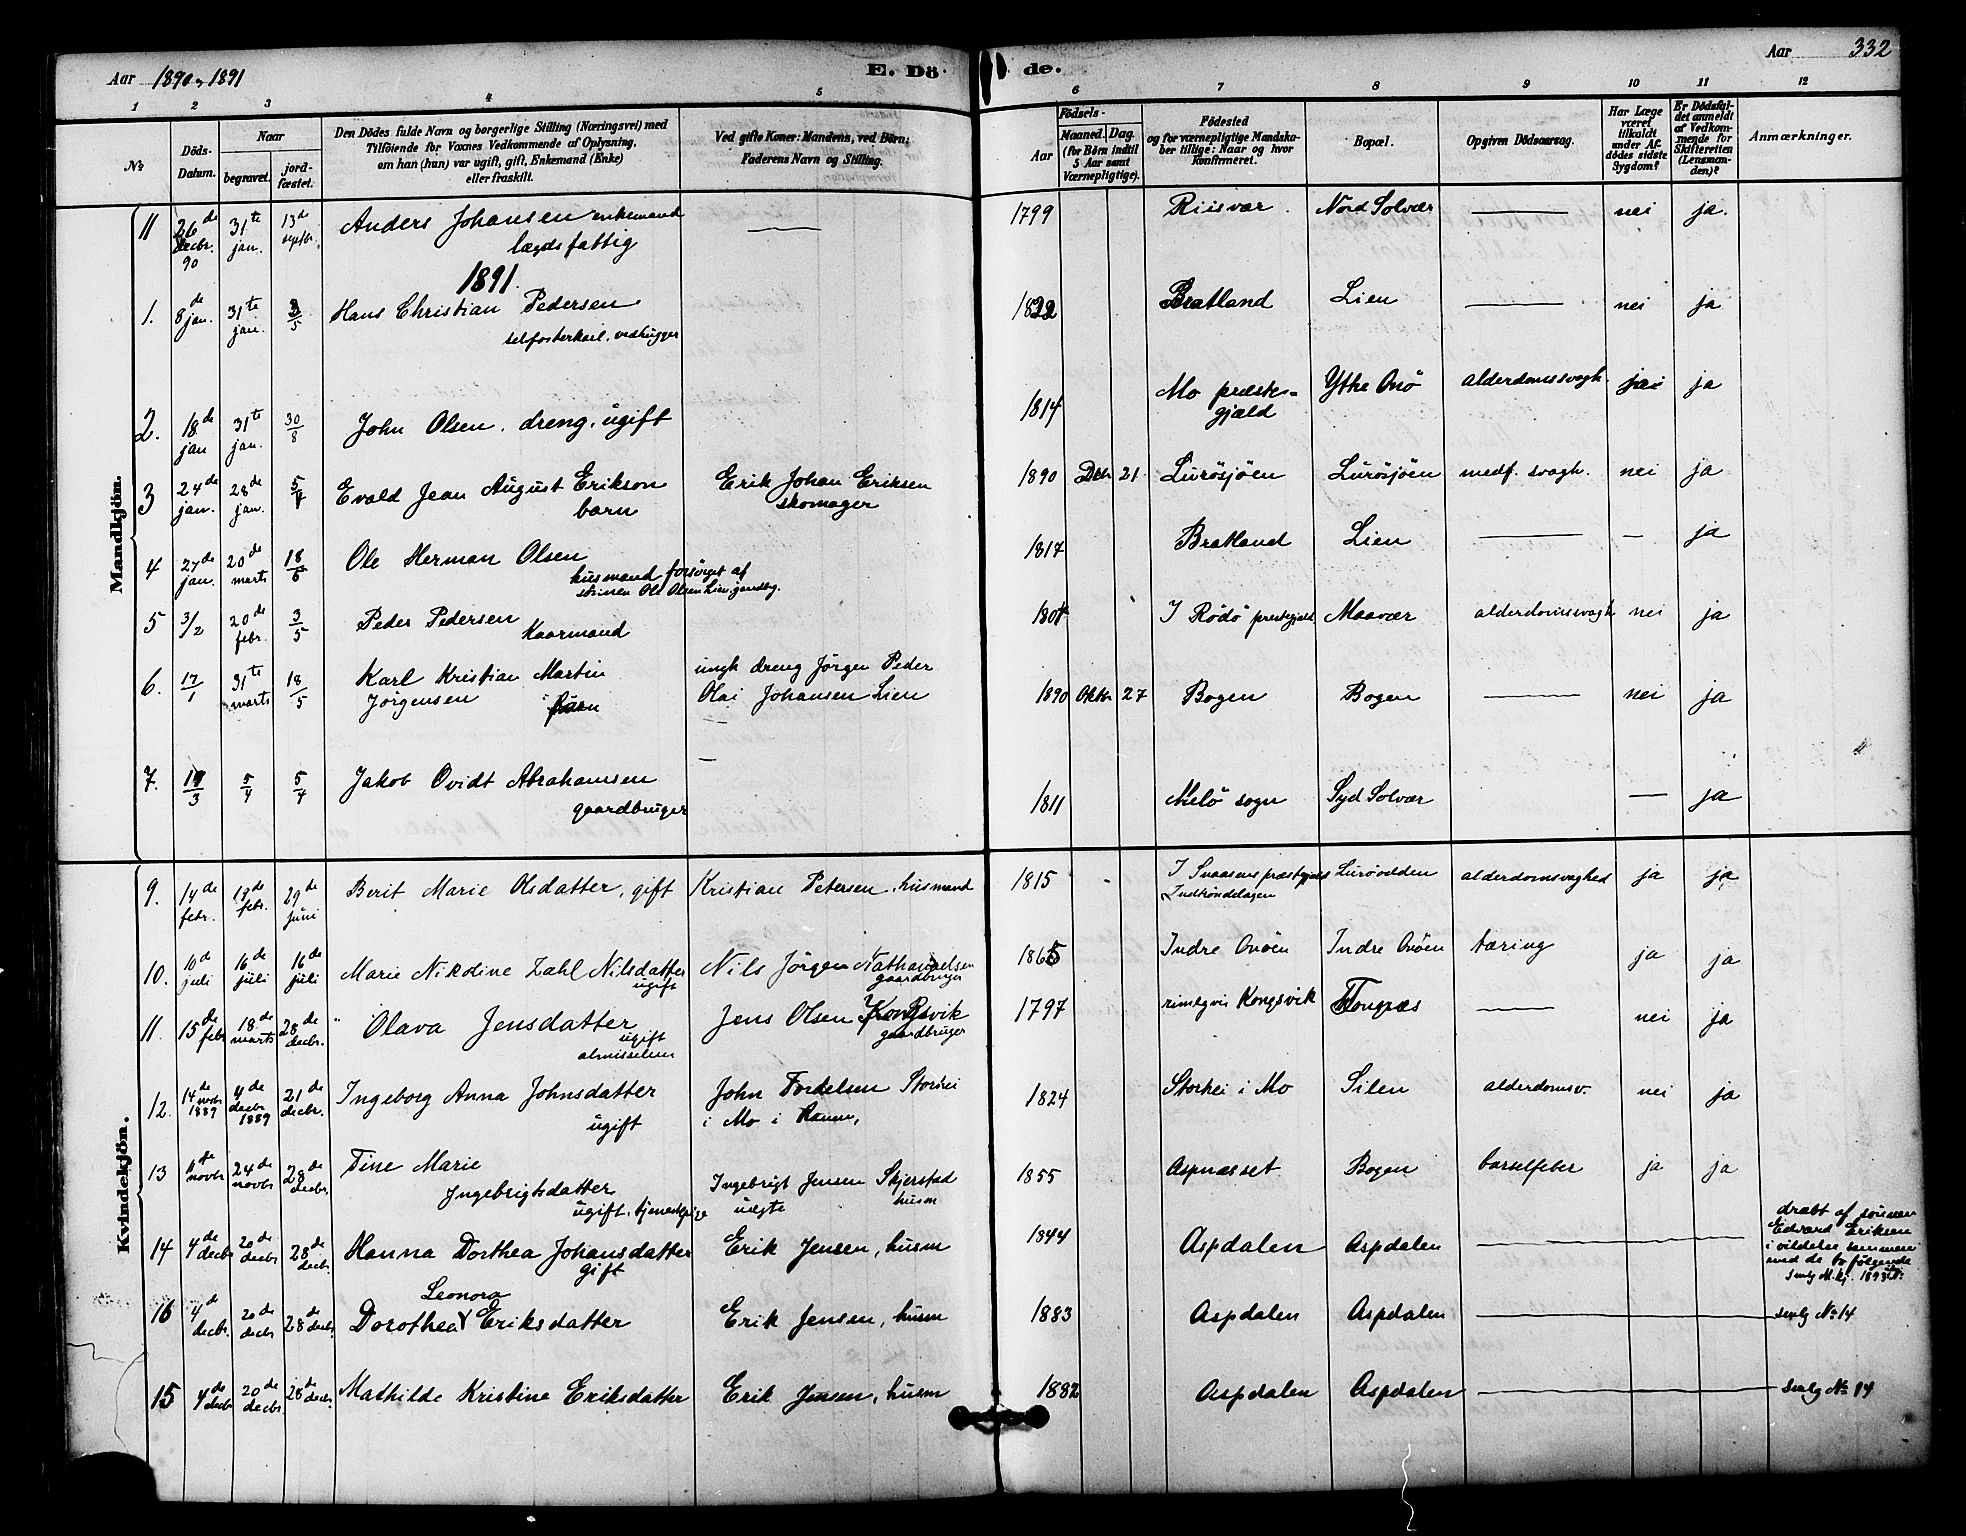 Aar 1890, 1891
E. Dö
de.
Aar 332
1 2 3 4 5 6 7 8 9 10 11 12
No
Döds-Datum.
Naar
begravet.
jord-fæstet.
Den Dödes fulde Navn og borgerlige Stilling (Næringsvei) med
Tilföiende for Voxnes Vedkommende af Oplysning,
om han (hun) var ugift, gift, Enkemand (Enke)
eller fraskilt.
Ved gifte Koner: Mandens, ved Börn:
Faderens Navn og Stilling.
Födsels-
Aar
Maaned. Dag.
(for Börn indtil
5 Aar samt
Værnepligtige).
Födested
og for værnepligtige Mandska-
ber tillige: Naar og hvor
Konfirmeret.
Bopæl.
Opgiven Dödsaarsag.
Har Læge
været
tilkaldt
under Af-
dödes sidste
Sygdom?
Er Dödsfal-
det anmeldt
af Vedkom-
mende for
Skifteretten
(Lensman-
den)?
Anmærkninger.
Mandkjön.
11 26de decbr. 90 31te jan. 13de septbr. Anders Johansen enkemand
lægdsfattig — 1799 Riisvær Nord Solvær — nei ja.
1891.
1. 8de jan. 31te jan. 3/5 Hans Christian Pedersen
selfosterkarl, vedhugger 1822 Bratland Lien — nei ja
2. 18de jan 31te jan. 30/8 John Olsen, dreng, ugift 1814 Mo præste-
gjæld Ytre Onö alderdomssvagh. ja
3 24de jan. 28de jan. 5/4 Evald Jean August Erikson
barn Erik Johan Eriksen
skomager 1890 Decbr 21 Lurösjöen Lurösjöen medf. svagh. nei ja
4 27de jan. 20de marts 18/6 Ole Herman Olsen
husmand forsörget af
sönnen Ole Olsen Lien, gaardbg. 1817 Bratland Lien — — ja
5 3/2 20de febr. 3/5 Peder Pedersen
Kaarmand I Rödö præstegjæld Maavær alderdomssvagh nei ja
6. 17/1 31te marts 18/5 Karl Kristian Martin
Jörgensen barn ungk. dreng Jörgen Peder
Olai Johansen Lien 1890 Oktbr 27 Bogen Bogen — nei ja
7. 5/4 5/4 Jakob Ovidt Abrahamsen
gaardbruger — 1811 Melö sogn Syd Solvær — ja
Kvindekjön.
9. 14de febr. 19de febr. 29de juni Berit Marie Olsdatter, gift Kristian Petersen, husmand 1815 I Snaasens præstegjæld
Indtröndelagen Lurövolden alderdomssvaghed ja ja
10. 10de juli 16de juli 16de juli Marie Nikoline Zahl Nilsdatter
ugift Nils Jörgen Nathanaelsen
gaardbruger 1865 Indre Onöen Indre Onöen tæring ja ja
11. 15de febr 18de marts 28de decbr. Olava Jensdatter
ugift
almisselem Jens Olsen Kongsvik
gaardbruger 1797 rimeligvis Kongsvik Tongnæs — nei ja
12. 14de novbr 1889 4de decbr 1889 21de decbr. Ingeborg Anna Johnsdatter
ugift John Tordelsen Storhei
i Mo i Ranen, 1824 Storhei i Mo Silen alderdomsv. nei ja
13 11de novbr 24de novbr 28de decbr. Tine Marie
Ingebrigtsdatter
ugift, tjenestpige Ingebrigt Jensen Skjerstad
uægte husm 1855 Aspnæsset Bogen barselfeber ja ja
14 4de decbr 20de decbr 28de decbr. Hanna Dorthea Johansdatter
gift Erik Jensen, husm 1844 Aspdalen Aspdalen —
dræbt af sönnen
Edvard Eriksen
i vildelse sammen
med de to fölgende
smlg M.kj. 1893
16 4de decbr. 20de decbr 28de decbr. Leonora
Dorothea Eriksdatter Erik Jensen, husm 1883 Aspdalen Aspdalen — smlg No 14
15 4de decbr 20de decbr. 28de decbr. Mathilde Kristine Eriksdatter Erik Jensen, husm 1882 Aspdalen Aspdalen — smlg No 14